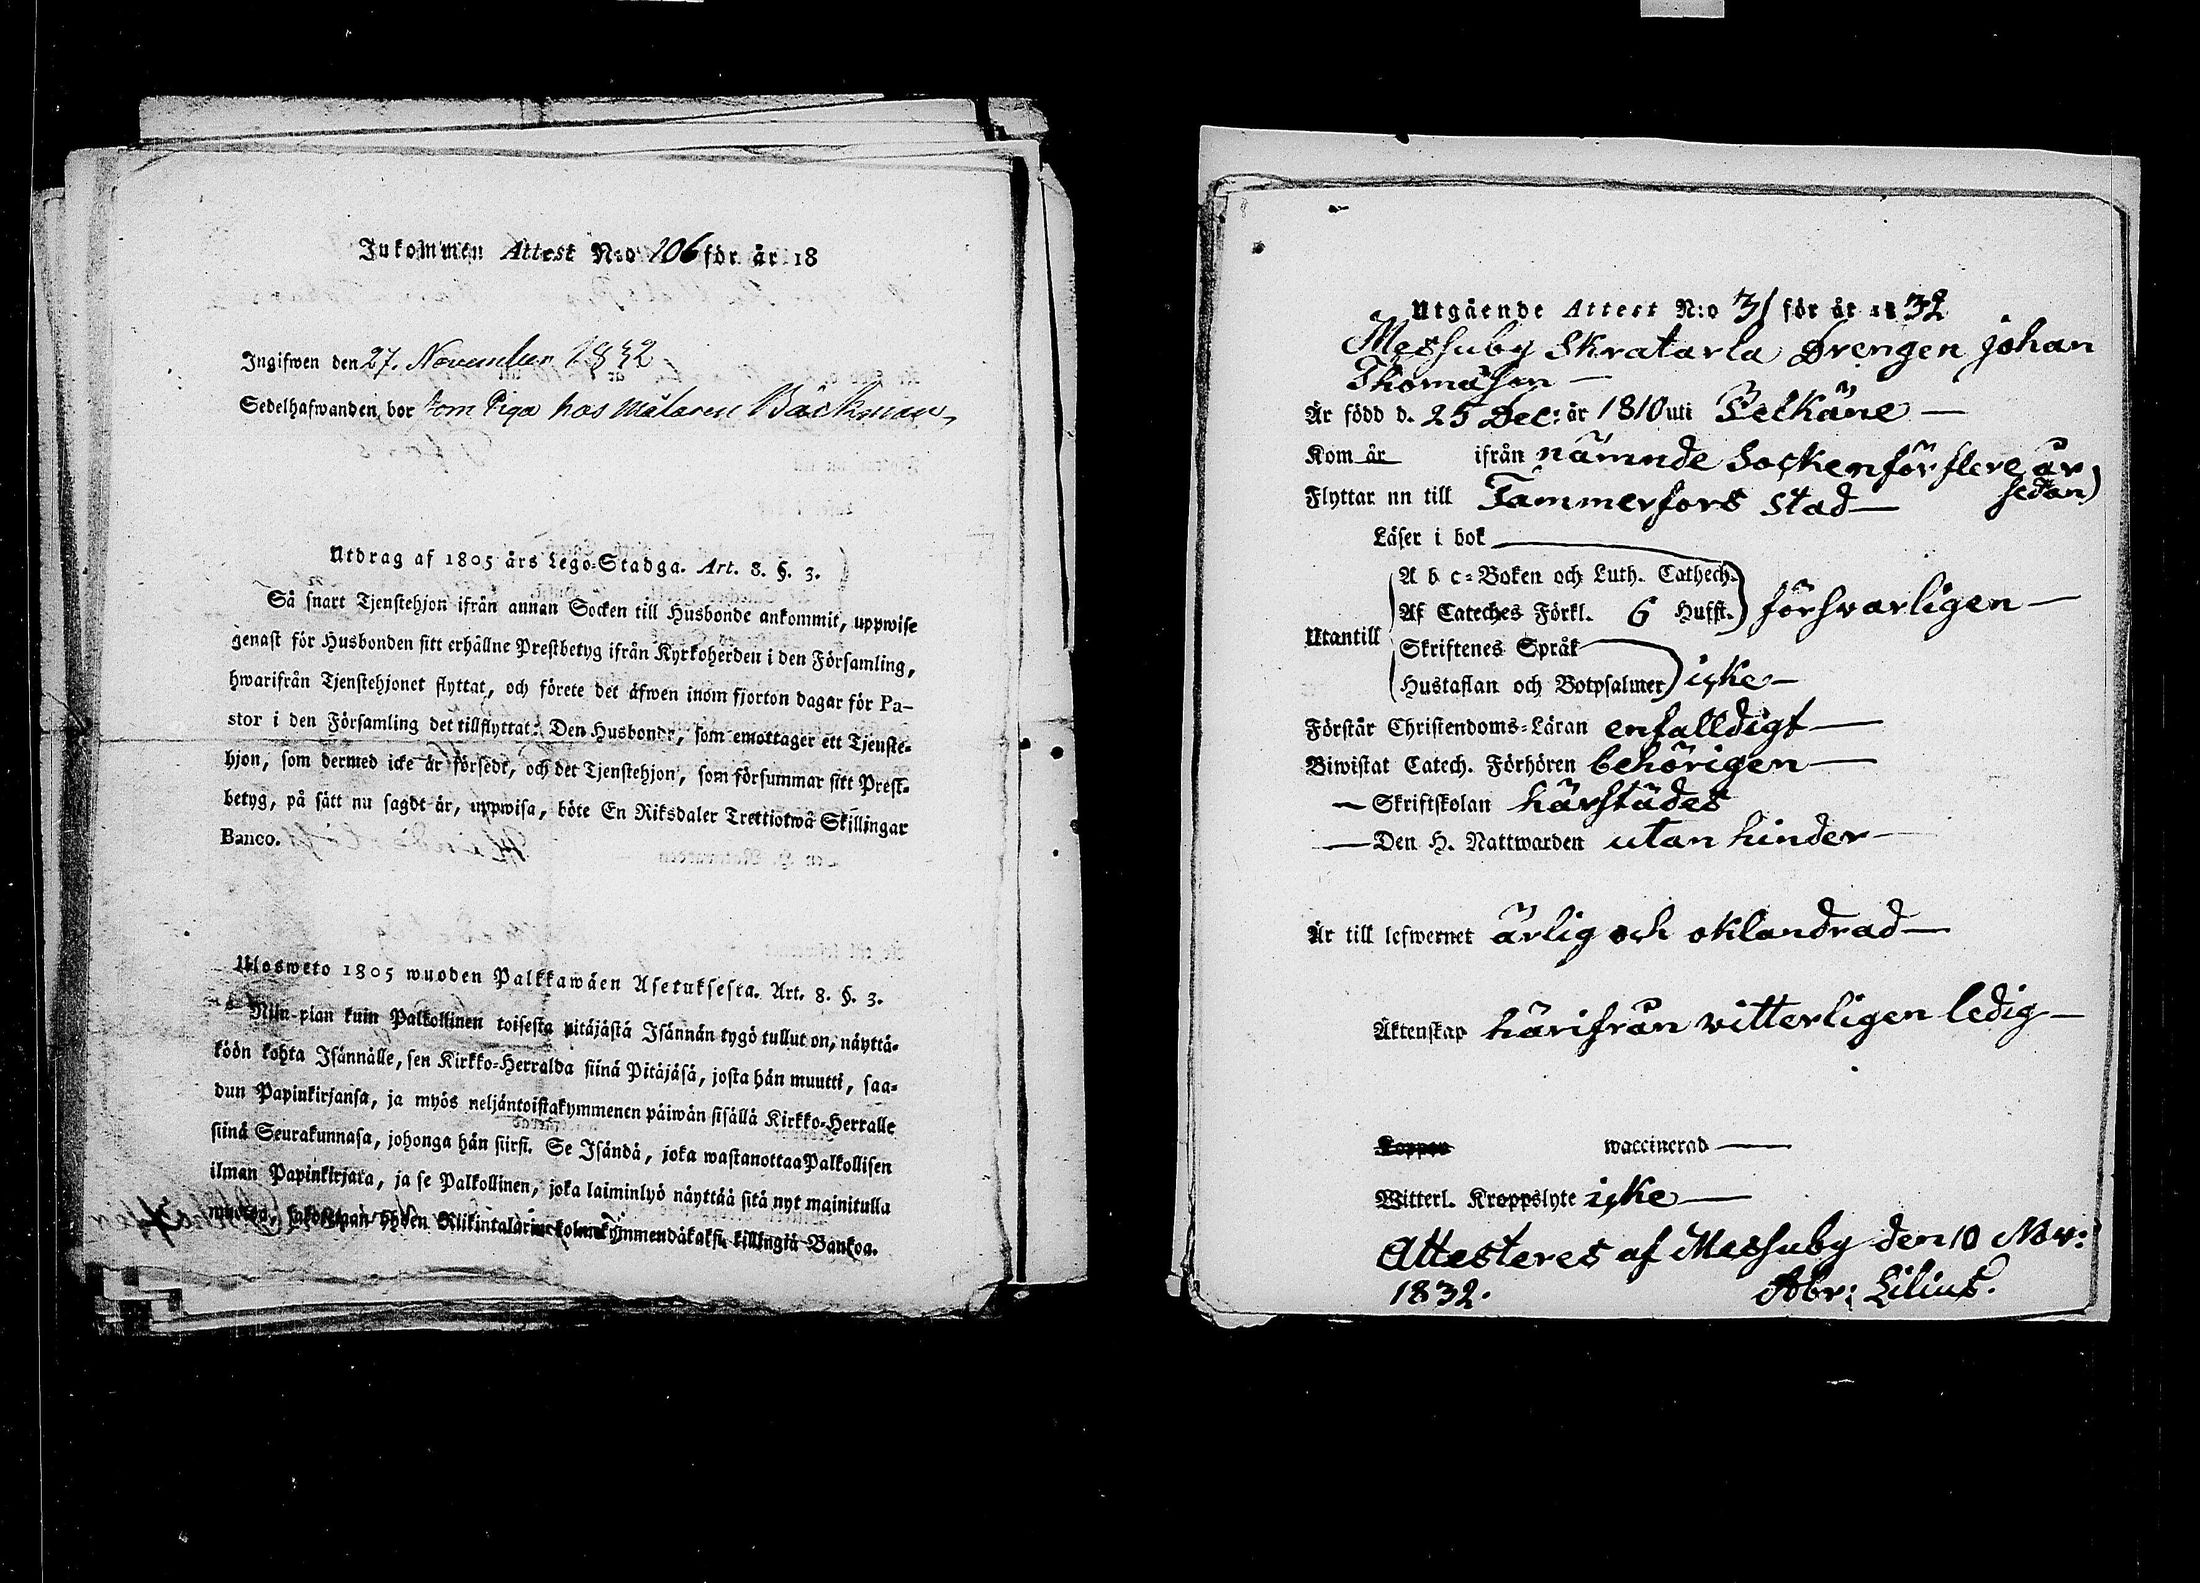 Inkommen Attest N:o 106 för år 18
Ingifwen den 27. November 1832
Sedelhafwanden bor som Piga hos Målaren Bäckman,
Utdrag af 1805 års Lego-Stadga. Art. 8. §. 3.
Så snart Tjenstehjon ifrån annan Socken till Husbonde ankommit, uppwise
genast för Husbonden sitt erhållne Prestbetyg ifrån Kyrkoherden i den Församling,
hwarifrån Tjenstehjonet flyttat, och förete det äfwen inom fjorton dagar för Pa-
stor i den Församling det tillflyttat: Den Husbonde, som emottager ett Tjenste-
hjon, som dermed icke är försedt, och det Tjenstehjon, som försummar sitt Prest-
betyg, på sätt nu sagdt är, uppwisa, böte En Riksdaler Trettiotwå Skillingar
Banco.
Ulosweto 1805 wuoden Palkkawäen Asetuksesta. Art. 8. §. 3.
Niin pian kuin Palkollinen toisesta pitäjästä Isännän tygö tullut on, näyttä-
köön kohta Isännälle, sen Kirkko-Herralda siinä Pitäjäsä, josta hän muutti, saa-
dun Papinkirjansa, ja myös neljäntoistakymmenen päiwän sisällä Kirkko-Herralle
siinä Seurakunnasa, johonga hän siirsi. Se Isändä, joka wastanottaa Palkollisen
ilman Papinkirjata, ja se Palkollinen, joka laiminlyö näyttää sitä nyt mainitulla
muotoa, sakoitetan yhden Riikintalarin kolmekymmendäkaksi killingiä Bankoa.
Utgående Attest N:o 31 för år 1832
Messuby Skratarla Drengen Johan
Thomasson —
Är född d. 25 Dec: år 1810 uti Pelkäne —
Kom år ifrån nämnde Socken för flere år
sedan)
Flyttar nu till Tammerfors Stad —
Läser i bok
A b c-Boken och Luth. Cathech.
Af Cateches Förkl. 6 Hufst. försvarligen —
Utantill
Skriftenes Språk
Hustaflan och Botpsalmer icke —
Förstår Christendoms-Läran enfalldigt —
Biwistat Catech. Förhören behörigen —
— Skriftskolan härstädes
— Den H. Nattwarden utan hinder —
Är till lefwernet ärlig och oklandrad —
Äktenskap härifrån vitterligen ledig —
Koppor waccinerad —
Witterl. Kroppslyte icke —
Attesteres af Messuby den 10 Nov:
1832. Abr: Lilius.